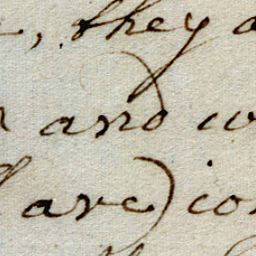 , they a
and w
are) con